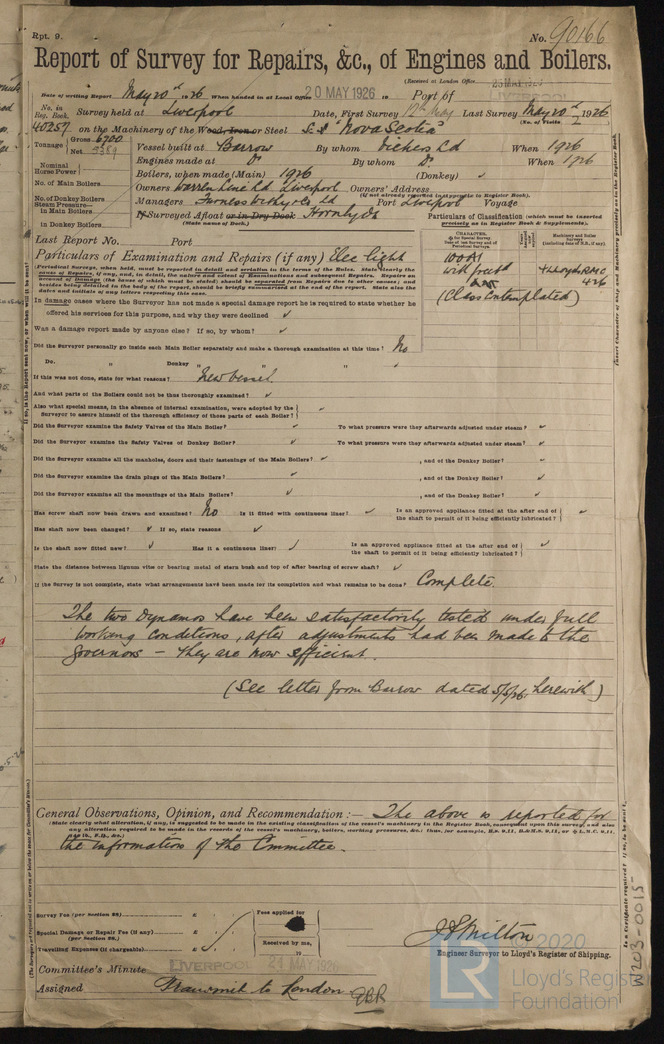 Rpt. 9.
No. 90166
Report of Survey for Repairs, &c., of Engines and Boilers.
(Received at London Office
Date of writing Report May 20th 1926 When handed in at Local Office 20 MAY 1926 19 Port of LIVERPOOL
No. in Reg. Book. Survey held at Liverpool Date, First Survey 12th May Last Survey May 20th 1926
(No. of Visits 2
40257 on the Machinery of the Wood, Iron or Steel S.S "Nova Scotia"
Tonnage Gross 6700 Net
Vessel built at Barrow By whom Vickers Ld When 1926
Engines made at Do By whom Do When 1926
Nominal Horse Power
Boilers, when made (Main) 1926 (Donkey) ✓
No. of Main Boilers
Owners Warren Line Ld Liverpool Owners' Address
(if not already recorded in appendix to Register Book).
No. of Donkey Boilers
Managers Furness Withy & Co Ld Port Liverpool Voyage
Steam Pressure—
in Main Boilers
If Surveyed Afloat or in Dry Dock Hornby Dk
(State name of Dock.)
in Donkey Boilers
Particulars of Classification (which must be inserted precisely as in Register Book & Supplements).
Last Report No. Port
Particulars of Examination and Repairs (if any) Elec Light
CHARACTER,
Machinery and Boiler Surveys
100A1
with freebd
(Class Contemplated)
4.26
In damage cases where the Surveyor has not made a special damage report he is required to state whether he
offered his services for this purpose, and why they were declined ✓
Was a damage report made by anyone else? If so, by whom? ✓
Did the Surveyor personally go inside each Main Boiler separately and make a thorough examination at this time? No
Do. " Donkey " " " "
If this was not done, state for what reasons? New vessel
And what parts of the Boilers could not be thus thoroughly examined? ✓
Also what special means, in the absence of internal examination, were adopted by the
Surveyor to assure himself of the thorough efficiency of those parts of each Boiler? ✓
Did the Surveyor examine the Safety Valves of the Main Boiler? ✓ To what pressure were they afterwards adjusted under steam? ✓
Did the Surveyor examine the Safety Valves of Donkey Boiler? ✓ To what pressure were they afterwards adjusted under steam? ✓
Did the Surveyor examine all the manholes, doors and their fastenings of the Main Boilers? ✓ , and of the Donkey Boiler? ✓
Did the Surveyor examine the drain plugs of the Main Boilers? ✓ , and of the Donkey Boiler? ✓
Did the Surveyor examine all the mountings of the Main Boilers? ✓ , and of the Donkey Boiler? ✓
Has screw shaft now been drawn and examined? No Is it fitted with continuous liner? ✓ Is an approved appliance fitted at the after end of
the shaft to permit of it being efficiently lubricated? ✓
Has shaft now been changed? ✓ If so, state reasons ✓
Is the shaft now fitted new? ✓ Has it a continuous liner? ✓ Is an approved appliance fitted at the after end of
the shaft to permit of it being efficiently lubricated? ✓
State the distance between lignum vitæ or bearing metal of stern bush and top of after bearing of screw shaft? ✓
If the Survey is not complete, state what arrangements have been made for its completion and what remains to be done? Complete.
The two Dynamos have been satisfactorily tested under full
working conditions, after adjustments had been made to the
governors – they are now efficient.
(See letter from Barrow dated 5/5/26, herewith)
General Observations, Opinion, and Recommendation:— The above is reported for
the information of the Committee.
Survey Fee (per Section 29) £
Fees applied for
Special Damage or Repair Fee (if any) £
(per Section 29.)
Received by me,
19
Travelling Expenses (if chargeable) £
J S Milton
Engineer Surveyor to Lloyd's Register of Shipping.
© 2020
Lloyd's Register
Foundation
LR
Committee's Minute LIVERPOOL 21 MAY 1926
Assigned Transmit to London
W203-0015